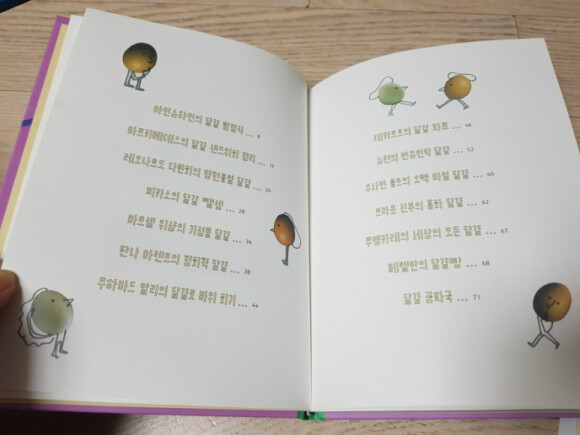 아인슈타인의 달걀 방정식 ... 9
아르키메데스의 달걀 샌드위치 정리 ... 14
레오나르도 다빈치의 영안불멸 달걀 ... 20
피카소의 달걀 뺄셈 ... 28
마르셀 뒤샹의 기성품 달걀 ... 34
한나 아렌트의 정치적 달걀 ... 38
무하마드 알리의 달걀로 바위 치기 ... 44
데카르트의 달걀 좌표 ... 48
뉴턴의 만유인력 달걀 ... 52
우사인 볼트의 오백 마일 달걀 ... 60
브라운 신부의 동화 달걀 ... 62
푸앵카레의 세상의 모든 달걀 ... 67
페렐만의 달걀빵 ... 68
달걀 공화국 ... 71